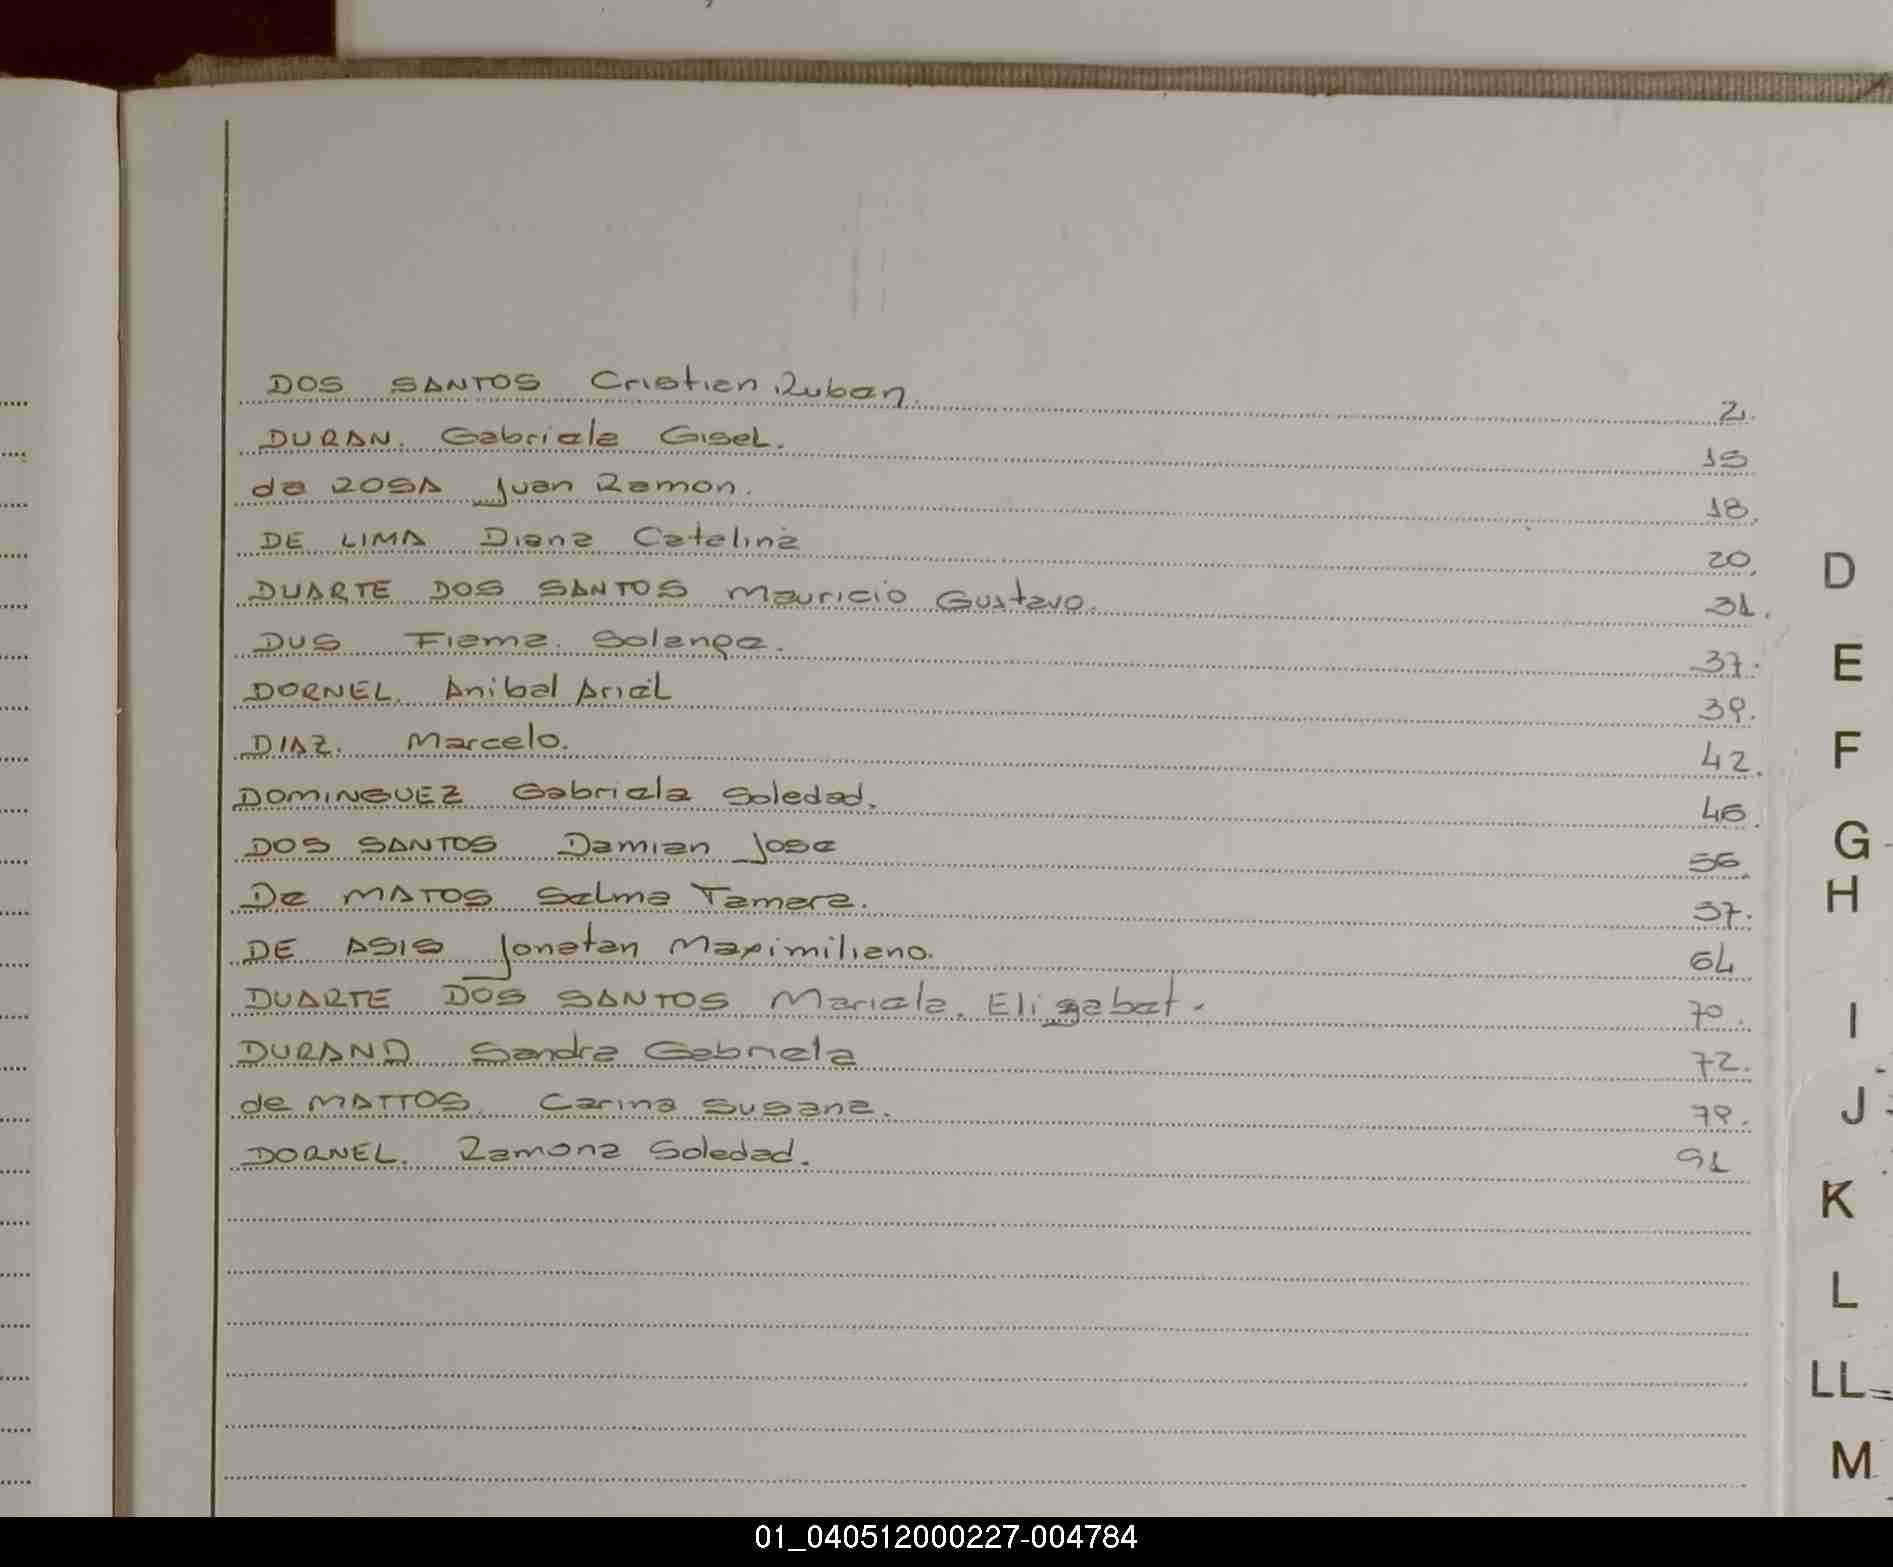 DOS SANTOS Cristian Ruben. 2.
DURAN. Gabriela Gisel. 15
da ROSA Juan Ramon. 18.
DE LIMA Diana Catalina 20.
DUARTE DOS SANTOS Mauricio Gustavo. 31.
DUS Fiama. Solange. 37.
DORNEL. Anibal Ariel 39.
DIAZ. Marcelo. 42.
DOMINGUEZ Gabriela Soledad. 46.
DOS SANTOS Damian Jose 56.
De MATOS Selma Tamara. 57.
DE ASIS Jonatan Maximiliano. 64
DUARTE DOS SANTOS Mariela. Elizabet. 70.
DURAND Sandra Gabriela 72.
de MATTOS. Carina Susana. 79.
DORNEL. Ramona Soledad. 91
D
E
F
G
H
I
J
K
L
LL
M
01_040512000227-004784